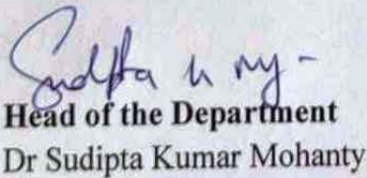 Sudipta k my -
Head of the Department
Dr Sudipta Kumar Mohanty